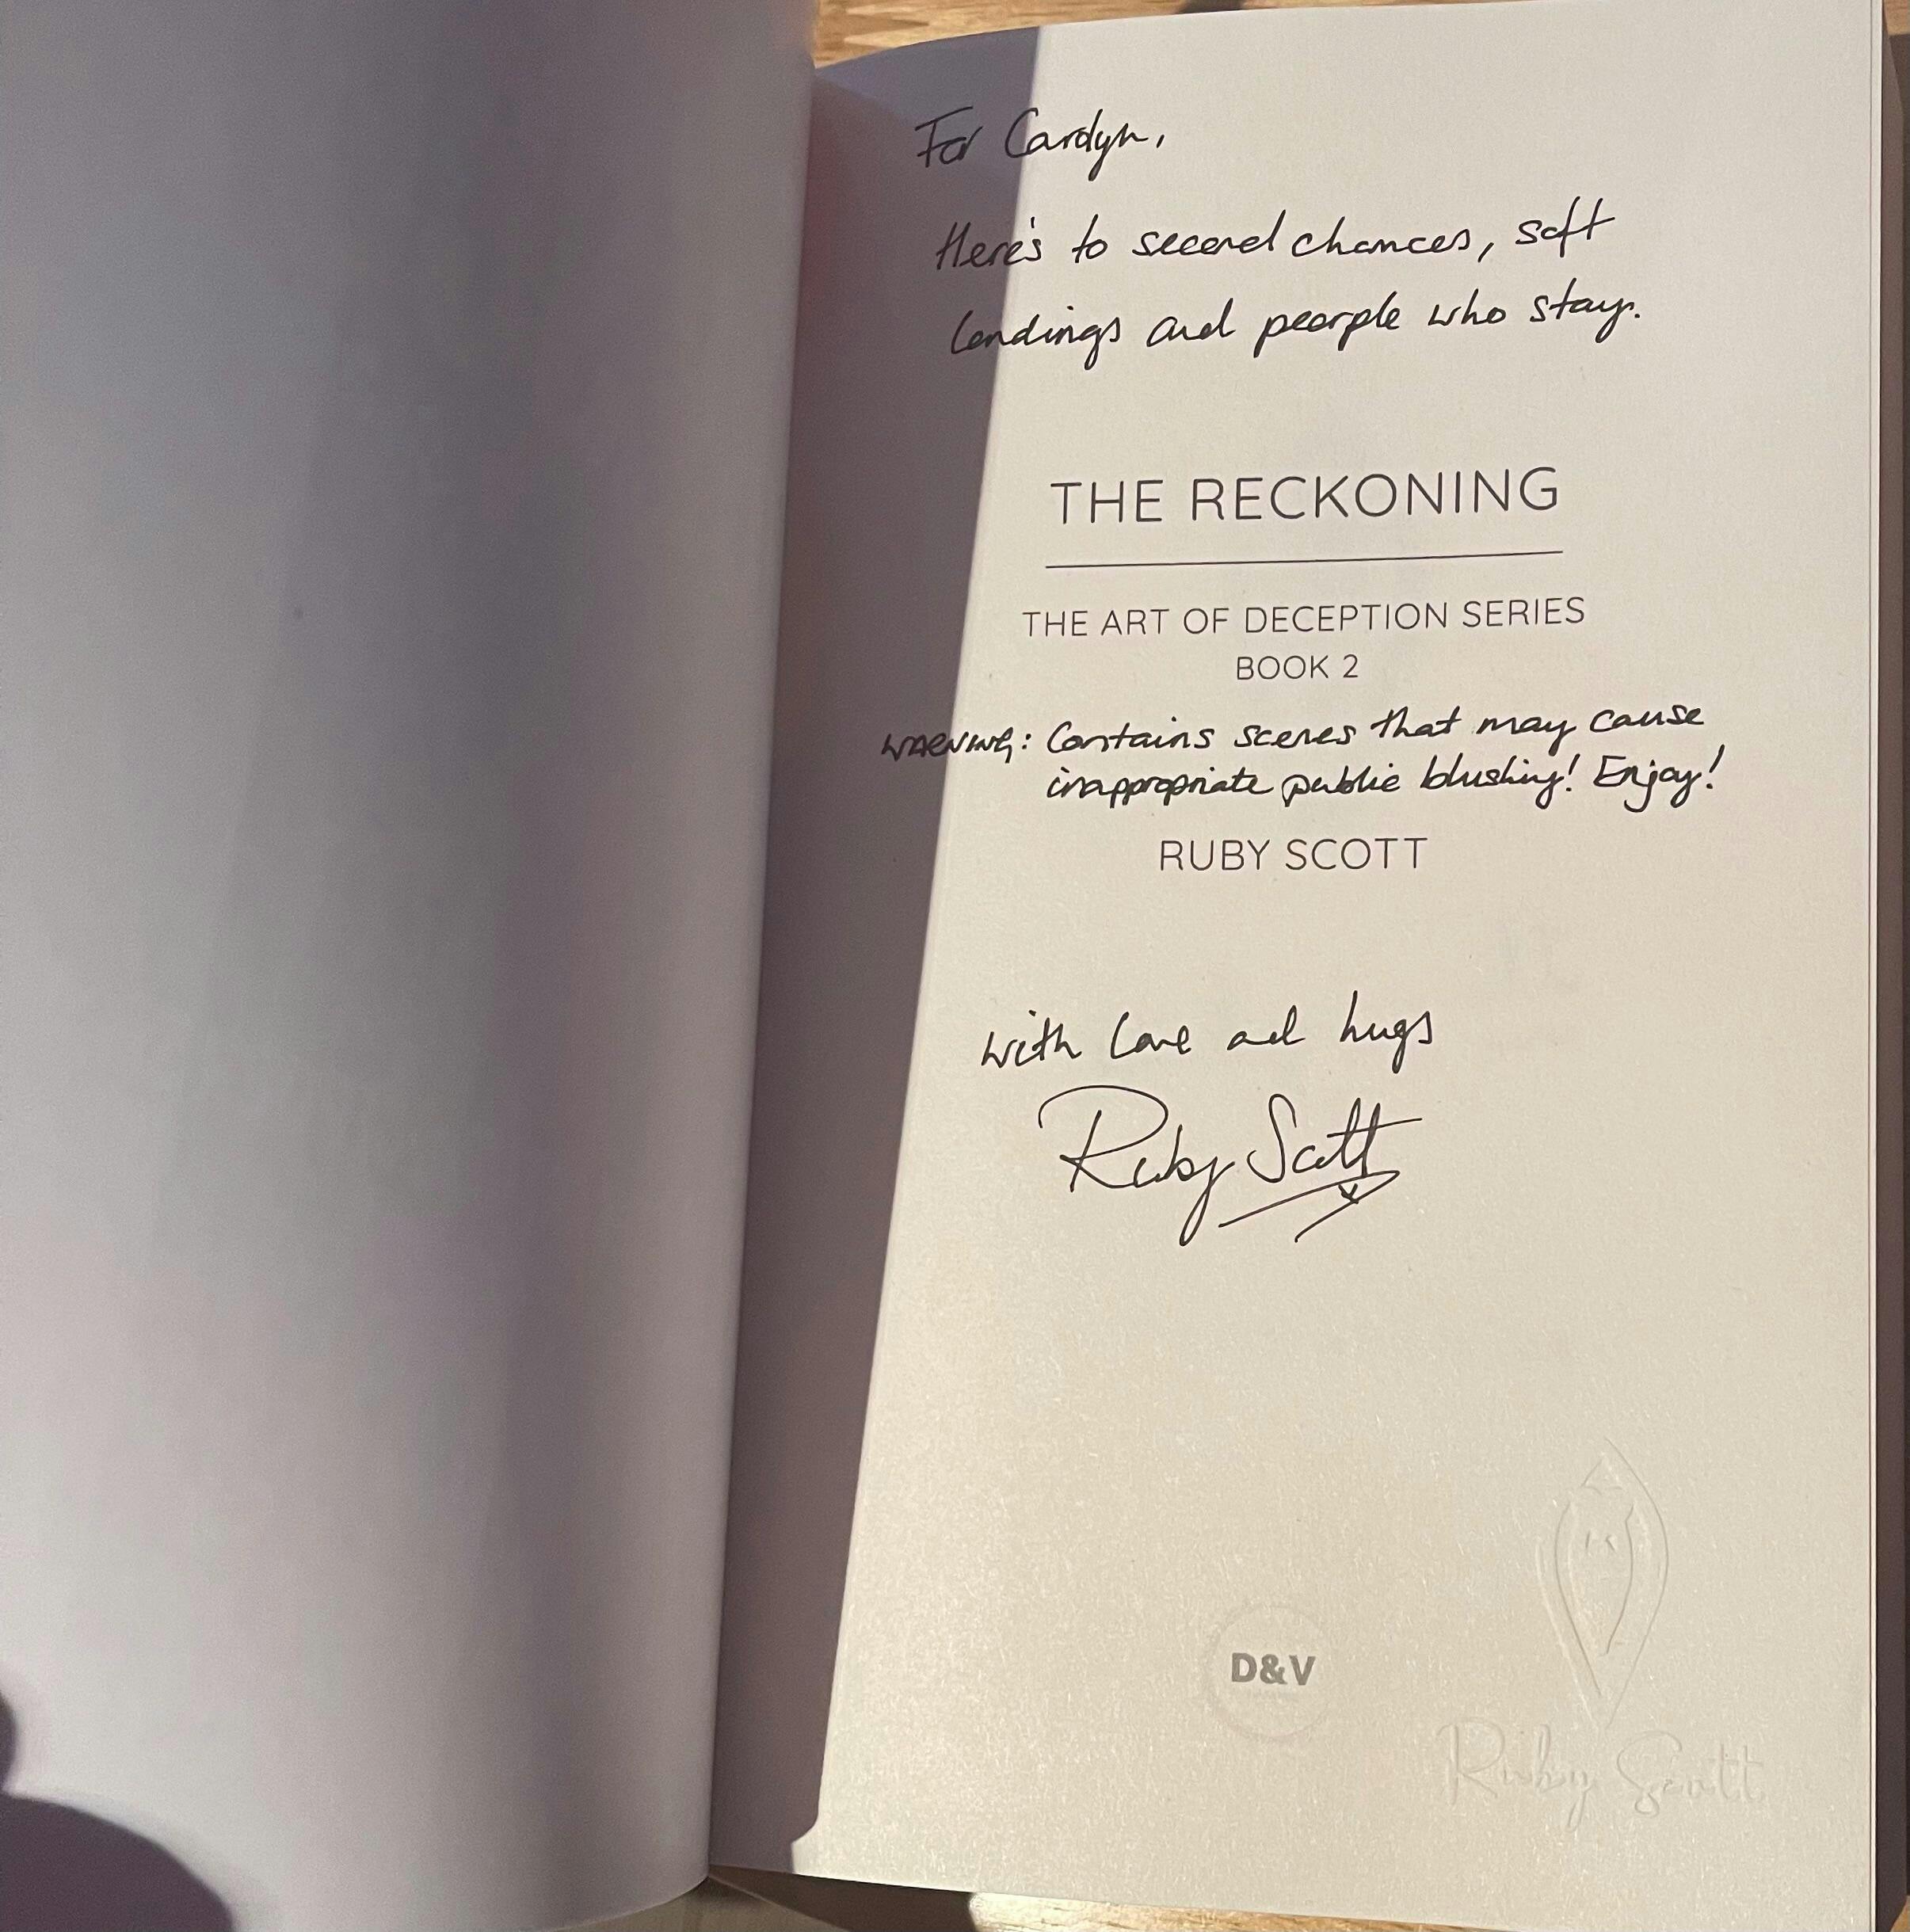 For Carolyn,
Here's to second chances, soft
landings and people who stay.
THE RECKONING
THE ART OF DECEPTION SERIES
BOOK 2
WARNING: Contains scenes that may cause
inappropriate public blushing! Enjoy!
RUBY SCOTT
with love and hugs
Ruby Scott
x
D&V
Ruby Scott